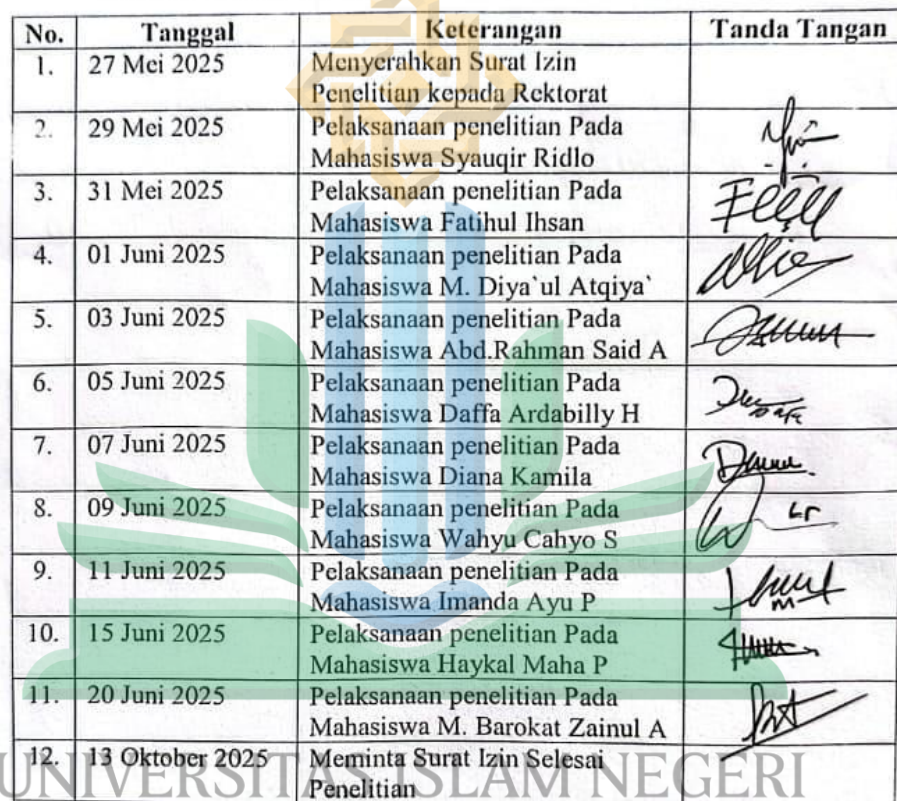 No. Tanggal Keterangan Tanda Tangan
1. 27 Mei 2025 Menyerahkan Surat Izin
Penelitian kepada Rektorat
2. 29 Mei 2025 Pelaksanaan penelitian Pada
Mahasiswa Syauqir Ridlo
3. 31 Mei 2025 Pelaksanaan penelitian Pada
Mahasiswa Fatihul Ihsan
4. 01 Juni 2025 Pelaksanaan penelitian Pada
Mahasiswa M. Diya`ul Atqiya`
5. 03 Juni 2025 Pelaksanaan penelitian Pada
Mahasiswa Abd.Rahman Said A
6. 05 Juni 2025 Pelaksanaan penelitian Pada
Mahasiswa Daffa Ardabilly H
7. 07 Juni 2025 Pelaksanaan penelitian Pada
Mahasiswa Diana Kamila
8. 09 Juni 2025 Pelaksanaan penelitian Pada
Mahasiswa Wahyu Cahyo S
9. 11 Juni 2025 Pelaksanaan penelitian Pada
Mahasiswa Imanda Ayu P
10. 15 Juni 2025 Pelaksanaan penelitian Pada
Mahasiswa Haykal Maha P
11. 20 Juni 2025 Pelaksanaan penelitian Pada
Mahasiswa M. Barokat Zainul A
12. 13 Oktober 2025 Meminta Surat Izin Selesai
Penelitian
UNIVERSITAS ISLAM NEGERI